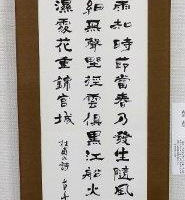 雨知時節當春乃發生隨風
細無聲野徑雲俱黑江船火
濕處花重錦官城
杜甫之詩